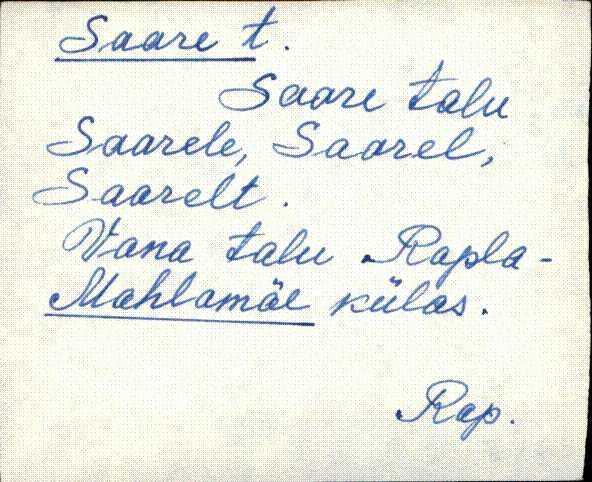 Saare t.
Saare talu
Saarele, Saarel,
Saarelt.
Vana talu Rapla-
Mahlamäe külas.
Rap.